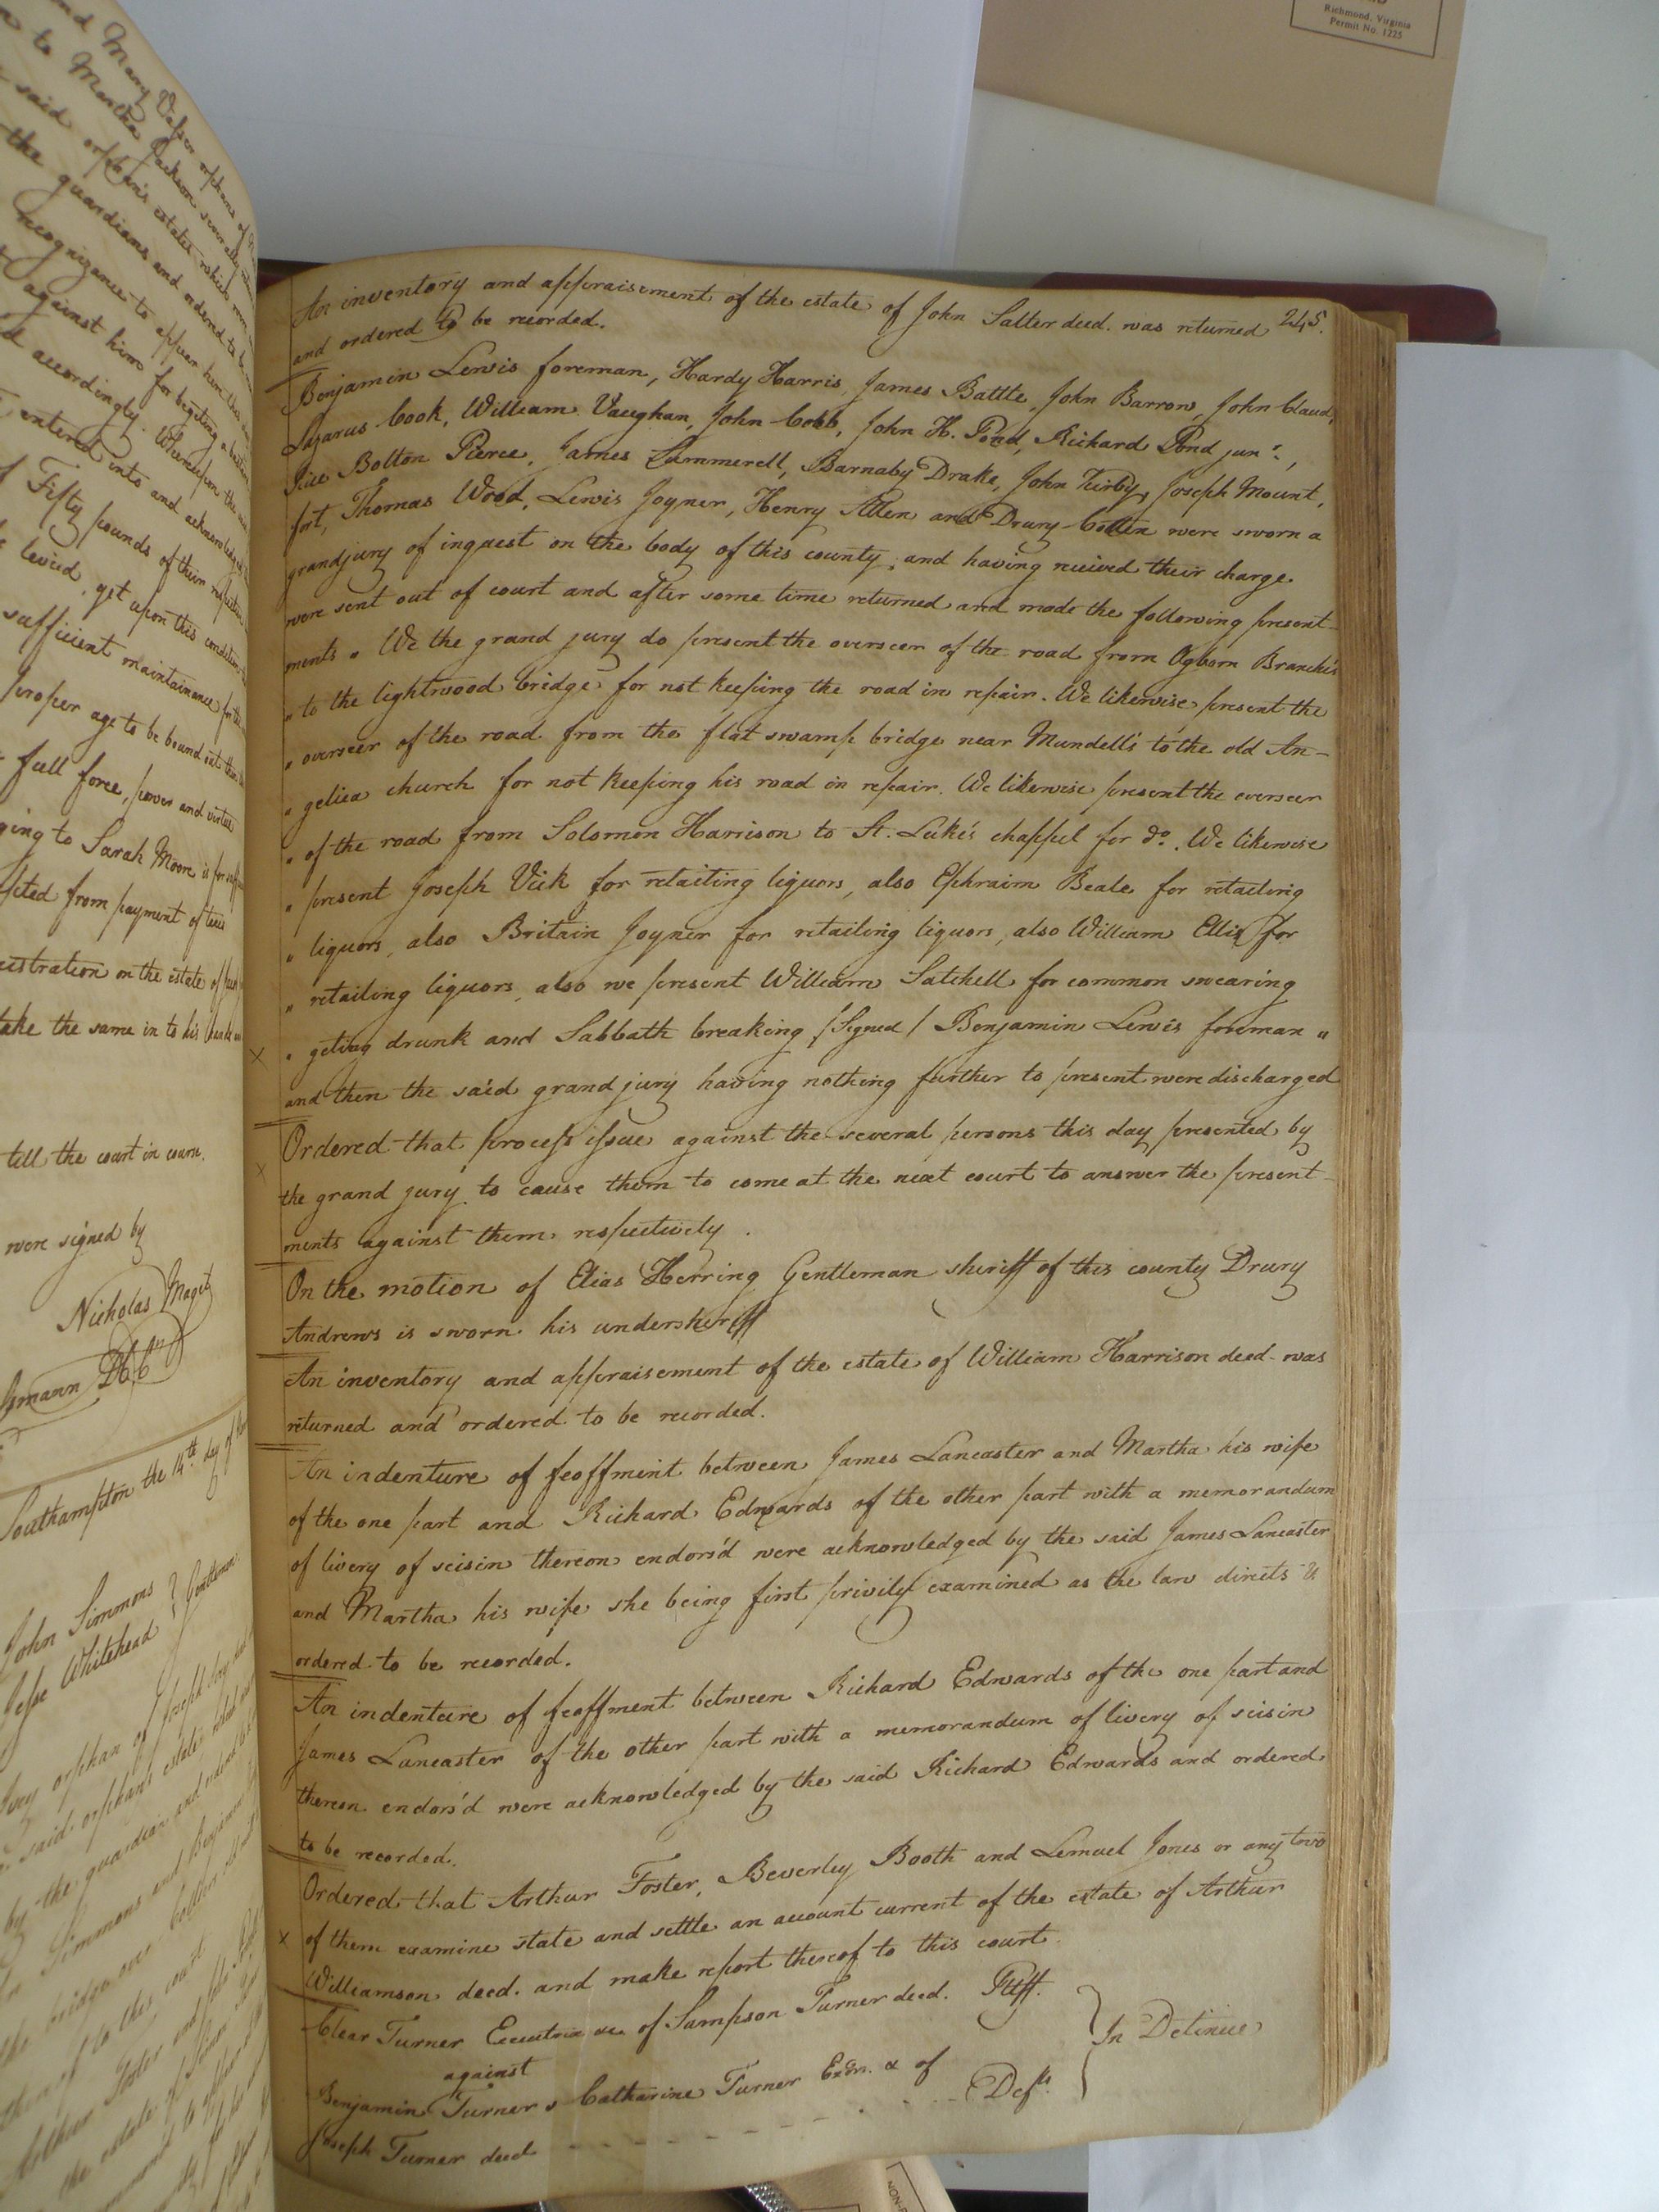 Richmond, Virginia
Permit No. 1225
and Mary Vasser orphans of
to Martha Jackson severally
said orphan's estates which
the guardians and ordered to be
recognizance to appear here this
against him for begeting a
accordingly. Whereupon the
entered into and acknowledged
Fifty pounds of their respective
levied, yet upon this condition
sufficient maintainance for the
proper age to be bound out
full force, power and virtue
ging to Sarah Moore is
pted from payment of
istration on the estate of
take the same in to his hands
till the court in course.
were signed by
Nicholas Maget
Southampton the 14th. day of
John Simmons
Jesse Whitehead } Gentlemen
orphan of Joseph
said orphan's estate
by the guardian and ordered
Simmons and Benjamin
the bridge over
to this court
Arthur Foster and
the estate of
245.
An inventory and appraisement of the estate of John Salter decd. was returned
and ordered to be recorded.
Benjamin Lewis foreman, Hardy Harris, James Battle, John Barrow, John Claud,
Lazarus Cook, William Vaughan, John Cobb, John H. Pond, Richard Pond junr.,
Rice Bolton Pierce, James Sammerell, Barnaby Drake, John Kirby, Joseph Mount,
fort, Thomas Wood, Lewis Joyner, Henry Allen and Drury Cotten were sworn a
grandjury of inquest on the body of this county, and having received their charge
were sent out of court and after some time returned and made the following present-
ments " We the grand jury do present the overseer of the road from Ogborn Branch's
" to the lightwood bridge for not keeping the road in repair. We likewise present the
" overseer of the road from the flat swamp bridge near Mundell's to the old An-
" gelica church for not keeping his road in repair. We likewise present the overseer
" of the road from Solomon Harrison to St. Luke's chappel for do. We likewise
" present Joseph Vick for retailing liquors, also Ephraim Beale for retailing
" liquors, also Britain Joyner for retailing liquors, also William Ellis for
" retailing liquors, also we present William Satchell for common swearing
x " geting drunk and Sabbath breaking /Signed/ Benjamin Lewis foreman "
and then the said grand jury having nothing further to present were discharged
x Ordered that process issue against the several persons this day presented by
the grand jury to cause them to come at the next court to answer the present-
ments against them respectively.
On the motion of Elias Herring Gentleman sheriff of this county Drury
Andrews is sworn his undersheriff
An inventory and appraisement of the estate of William Harrison decd. was
returned and ordered to be recorded.
An indenture of feoffment between James Lancaster and Martha his wife
of the one part and Richard Edwards of the other part with a memorandum
of livery of seisin thereon endors'd were acknowledged by the said James Lancaster
and Martha his wife she being first privily examined as the law directs &
ordered to be recorded.
An indenture of feoffment between Richard Edwards of the one part and
James Lancaster of the other part with a memorandum of livery of seisin
thereon endors'd were acknowledged by the said Richard Edwards and ordered
to be recorded.
Ordered that Arthur Foster, Beverley Booth and Lemuel Jones or any two
x of them examine state and settle an account current of the estate of Arthur
Williamson decd. and make report thereof to this court.
Clear Turner Executrix &c. of Sampson Turner decd. Pltff.
against } In Detinue
Benjamin Turner & Catharine Turner Exrs. &c of
Joseph Turner decd - - - - - - Defts.